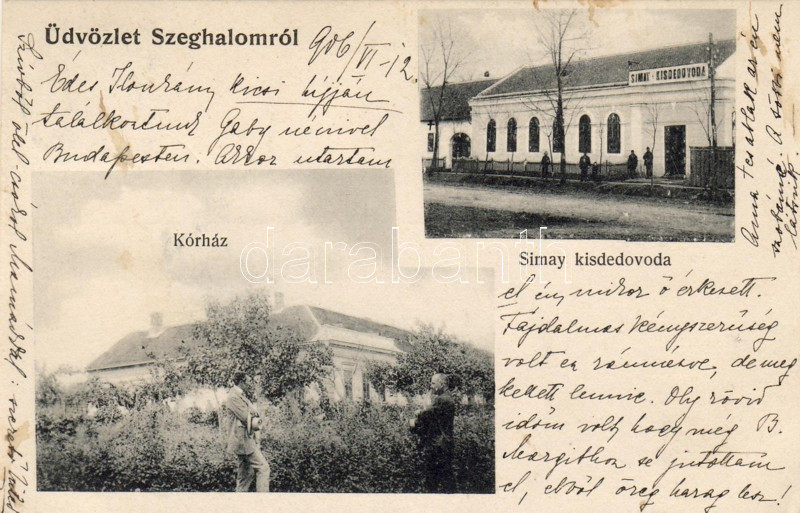 Üdvözlet Szeghalomról 906/VI-12.
Édes Ilonkány kicsi hijján
találkoztunk Gaby nénivel
Budapesten. Akkor utaztam
SIMAY-KISDEDOVODA
Kórház
Simay kisdedovoda
darabanth
el én, mikor ő érkezett.
Fájdalmas kényszerüség
volt ez reánk nézve, de meg
kellett lennie. Oly rövid
időm volt, hogy még B.
Margithoz se jutottam
el, ebből öreg harag lesz!
ölel csókol Mamáddal: szerető
Anna